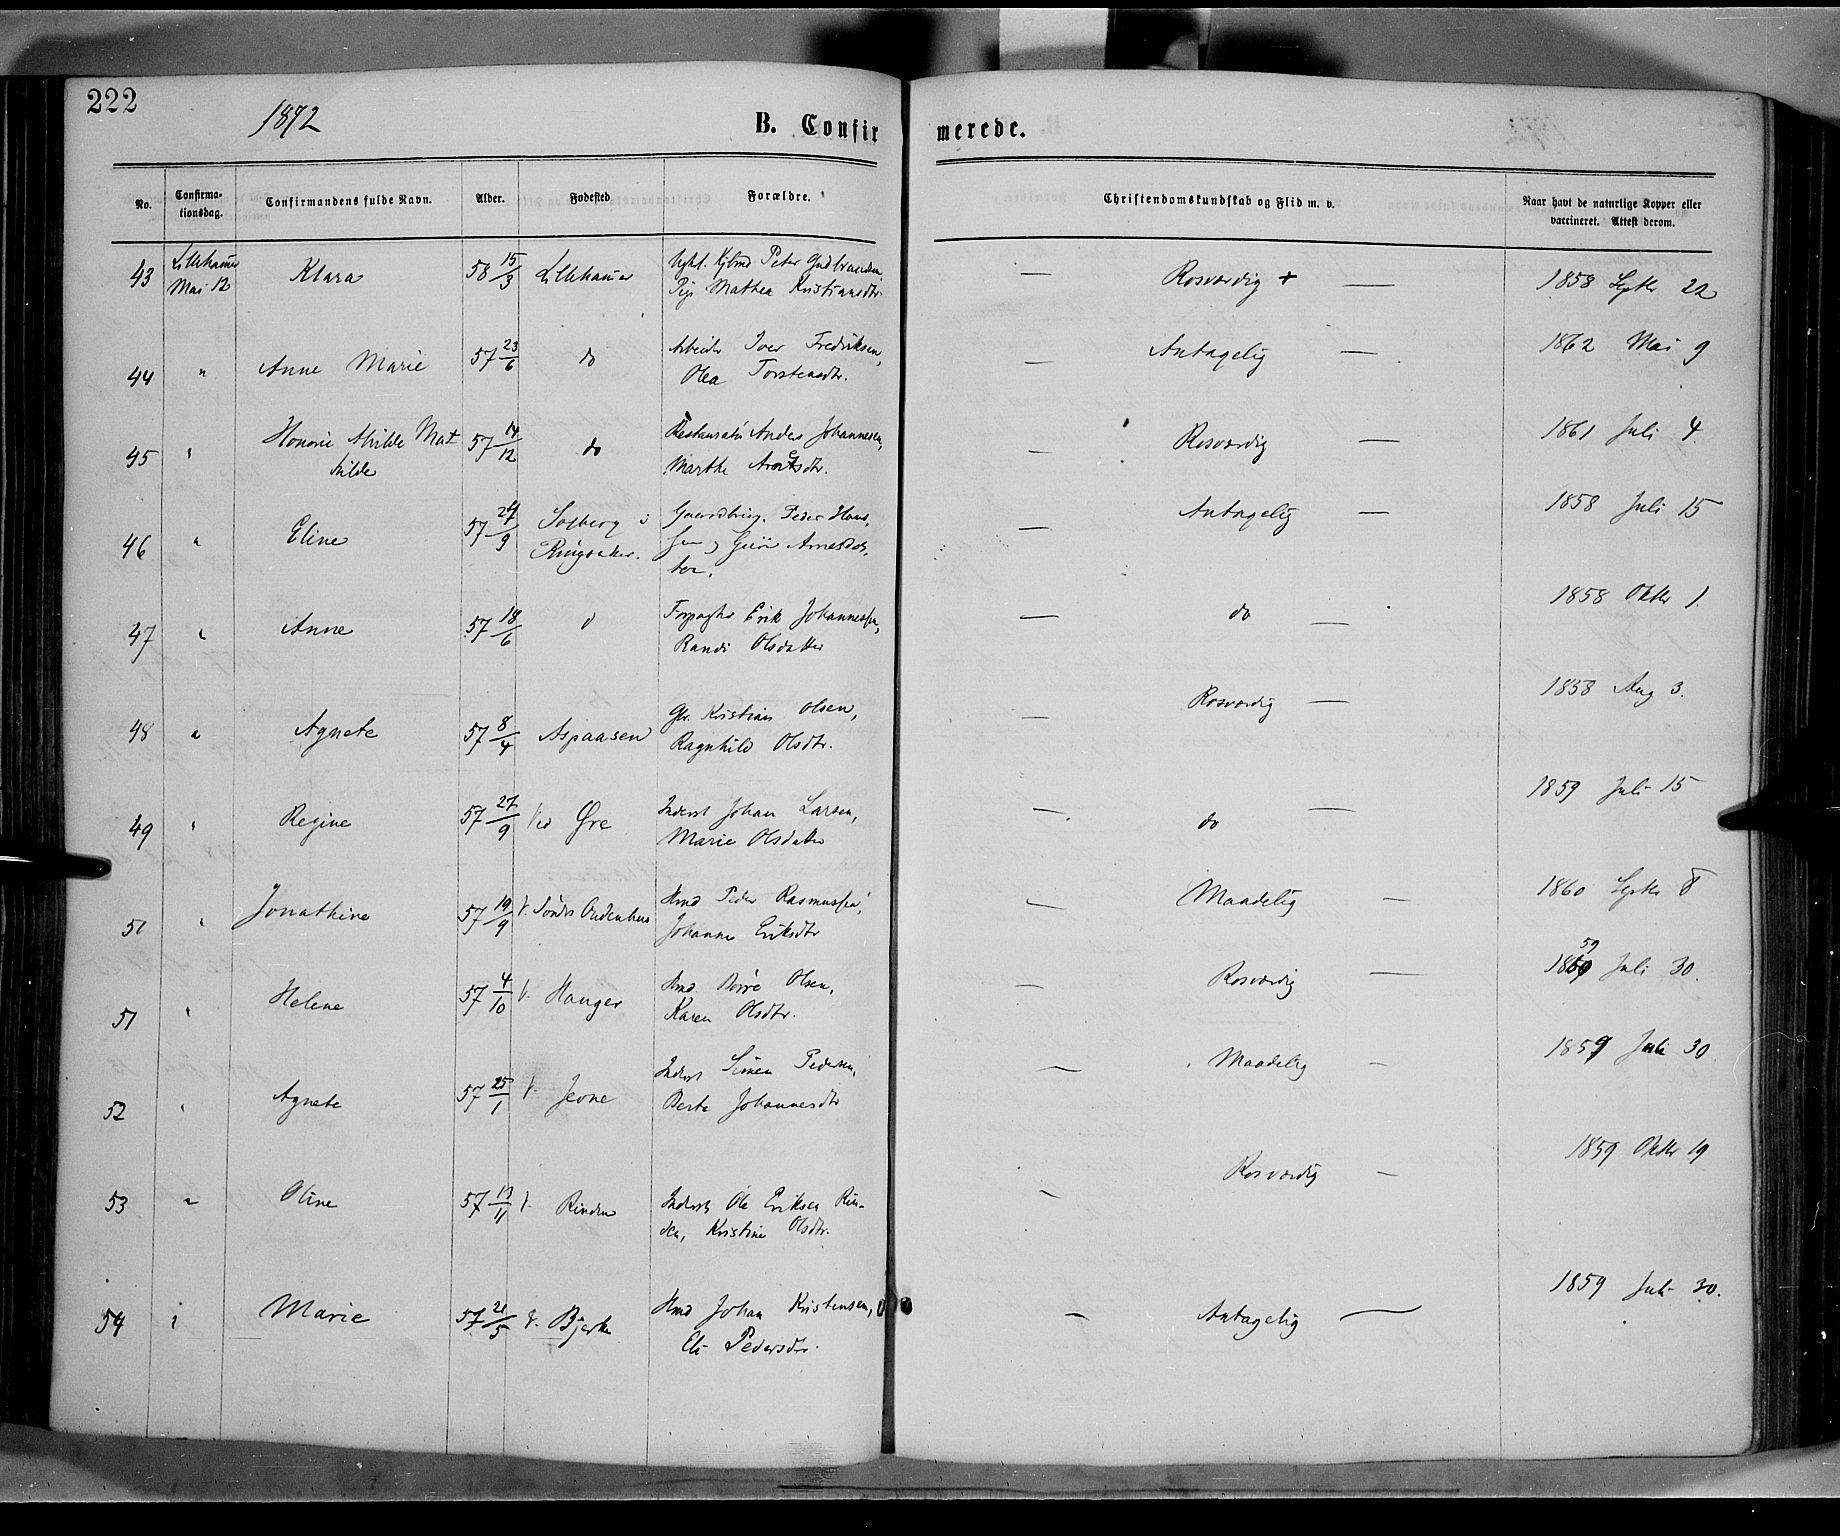 222
1872
B. Confirmerede.
No. Confirmationsdag. Confirmandens fulde Navn. Alder. Fødested Forældre. Christendomskundskab og Flid m. v. Naar havt de naturlige Kopper eller vaccineret. Attest derom.
43 Lillehamer Mai 12 Klara 58 15/3 Lillehamer Peter Gudbrandsen, Pige Mathea Kristiansdtr. — Rosværdig + — 1858 Septbr 22
44 " Anne Marie 57 23/6 do Arbeider Iver Fredriksen, Olea Torstensdtr. — Antagelig — 1862 Mai 9
45 " Honorie Alvilde Mathilde 57 14/12 do Restauratør Anders Johannesen, Marthe — Rosværdig — 1861 Juli 4.
46 " Eline 57 27/9 Solberg i Ringsaker. Gaardbrug. Peder Hansen, Arnesdatter. — Antagelig — 1858 Juli 15
47 " Anne 57 18/6 Forpagter Erik Johannessen, Randi Olsdatter — do — 1858 Oktbr 1.
48 " Agnete 57 8/4 Aspaasen Gbr. Kristian Olsen, Ragnhild Olsdtr. — Rosværdig — 1858 Aug 3.
49 " Regine 57 27/9 Ved Øre Inderst Johan Larsen, Marie Olsdatter — do — 1859 Juli 15
51 " Jonathine 57 19/9 V. Søndre Hmd Peder Rasmussen, Johanne Eriksdtr — Maadelig — 1860 Septbr 8
51 " Helene 57 4/10 V. Hauger Hmd Børre Olsen, Karen Olsdtr. — Rosværdig — 1859 Juli 30.
52 " Agnete 57 25/1 V. Jevne Inderst Simen Pedersen, Berte Johannesdtr — Maadelig — 1859 Juli 30
53 " Oline 57 13/11 V. Rinden Inderst Ole Eriksen Rinden, Kristine Olsdtr. — Rosværdig — 1859 Oktbr 19
54 Marie 57 21/5 V. Bjerke Hmd Johan Kristensen, Eli Pedersdtr. — Antagelig — 1859 Juli 30.